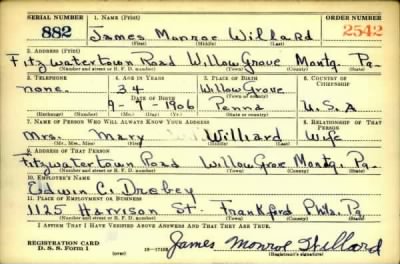 SERIAL NUMBER 1. NAME (Print) ORDER NUMBER
882 James Monroe Willard 2542
(First) (Middle) (Last)
2. ADDRESS (Print)
Fitzwatertown Road Willow Grove Montg. Pa-
(Number and street or R. F. D. number) (Town) (County) (State)
3. TELEPHONE 4. AGE IN YEARS 5. PLACE OF BIRTH 6. COUNTRY OF CITIZENSHIP
none. 34 Willow Grove
DATE OF BIRTH (Town or county)
1906 Penna U.S.A
(Exchange) (Number) (Mo.) (Day) (Yr.) (State or country)
7. NAME OF PERSON WHO WILL ALWAYS KNOW YOUR ADDRESS 8. RELATIONSHIP OF THAT PERSON
Mrs. Mary Willard Wife
(Mr., Mrs., Miss) (First) (Middle) (Last)
9. ADDRESS OF THAT PERSON
Fitzwatertown Road Willow Grove Montg. Pa-
(Number and street or R. F. D. number) (Town) (County) (State)
10. EMPLOYER'S NAME
Edwin C. Drobey
11. PLACE OF EMPLOYMENT OR BUSINESS
1125 Harrison St. Frankford Phila. Pa
(Number and street or R. F. D. number) (Town) (County) (State)
I AFFIRM THAT I HAVE VERIFIED ABOVE ANSWERS AND THAT THEY ARE TRUE.
REGISTRATION CARD
D. S. S. Form 1 James Monroe Willard
(Registrant's signature)